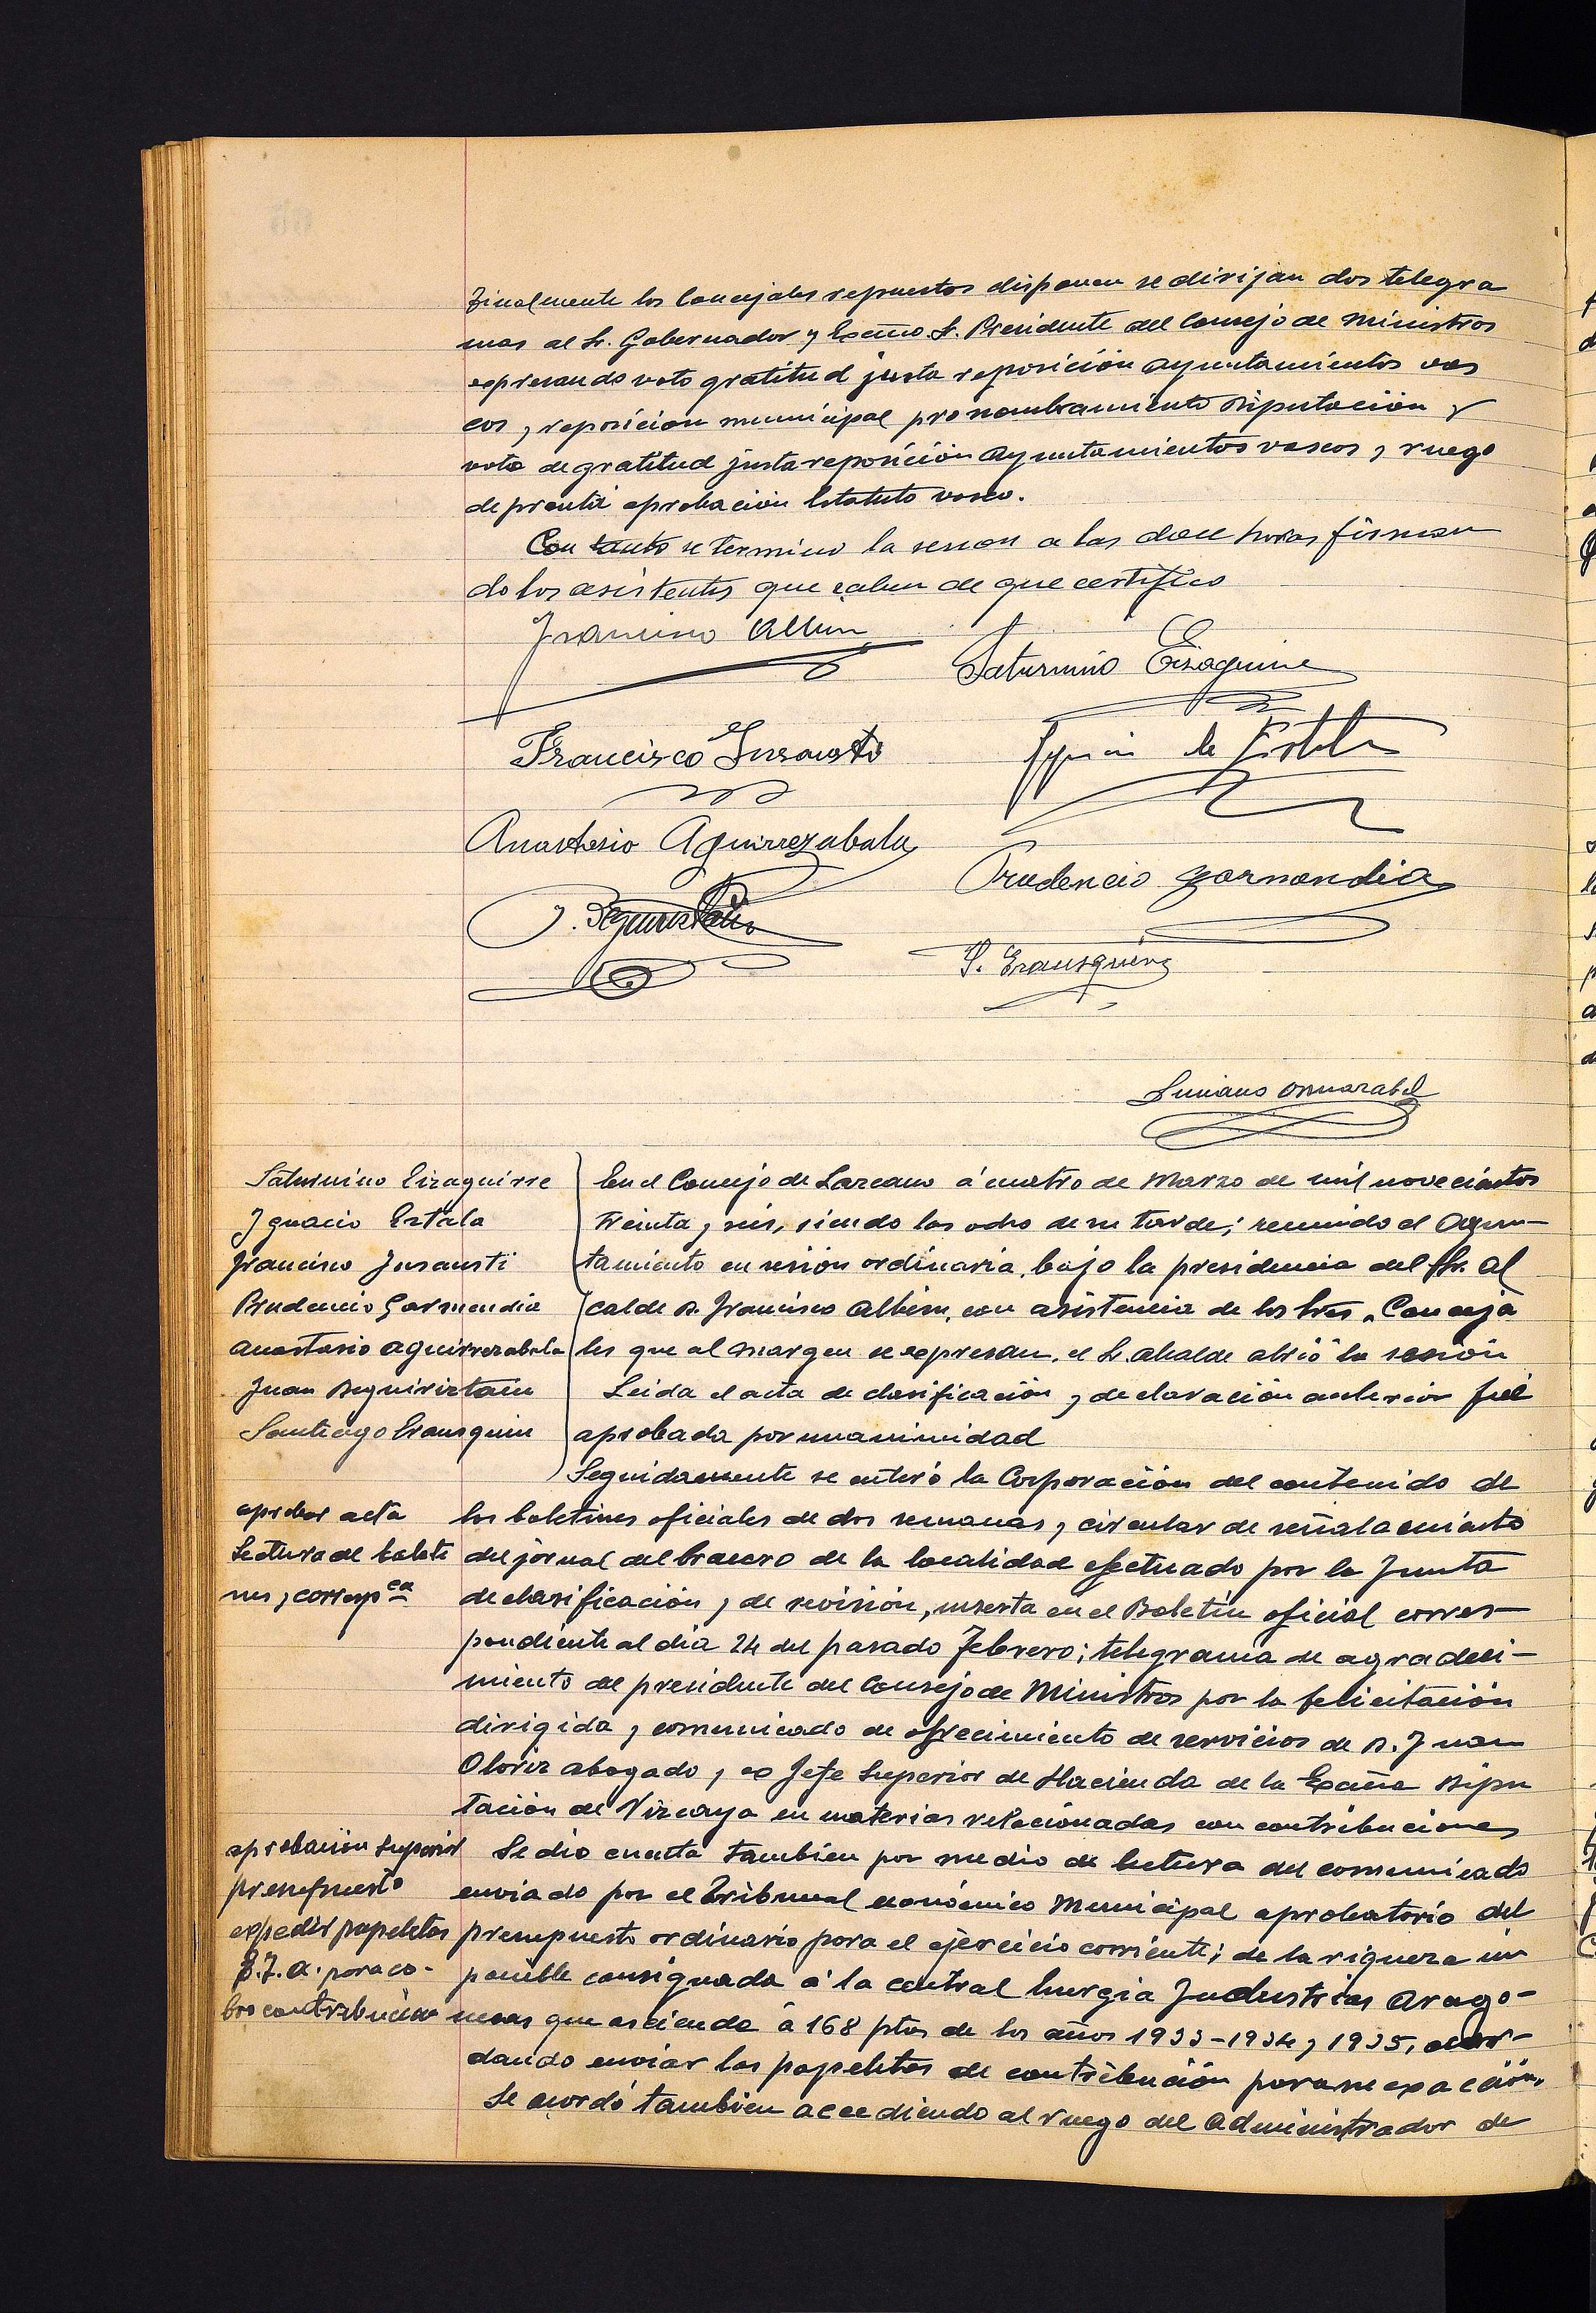 Finalmente los Concejales repuestos disponen se dirijan dos telegra
mas al Sr. Gobernador y Excmo Sr. Presidente del Consejo de Ministros
expresando voto gratitud justa reposición ayuntamientos vas
cos, reposicion municipal pro nombramiento Diputación y
voto de gratitud justa reposición Ayuntamientos vascos, ruego
de pronta aprobación Estatuto vasco.
Con tanto se termino la sesion a las doce horas firman
do los asistentes que saben de que certifico
Francisco Albisu
Saturnino Eizaguirre
Francisco Insausti
Ignacio de Estala
Anastasio Aguirrezabala
Prudencio Garmendia
J. Beguiristain
S. Erausquin
Luciano Ormazabal
Saturnino Eizaguirre
Ignacio Estala
Francisco Insausti
Prudencio Garmendia
Anastasio Aguirrezabala
Juan Beguiristain
Santiago Erausquin
En el Concejo de Lazcano á cuatro de Marzo de mil novecientos
treinta y seis, siendo las ocho de su tarde; reunido el Ayun-
tamiento en sesión ordinaria, bajo la presidencia del Sr. Al
calde D. Francisco Albisu, con asistencia de los Sres. Conceja
les que al margen se expresan, el Sr. alcalde abrió la sesión
Leida el acta de clasificación y declaración anterior fué
aprobada por unanimidad
aprobar acta
Lectura de boleti
nes, corresp.ca
Seguidamente se enteró la Corporación del contenido de
los boletines oficiales de dos semanas, circular de señalamiento
del jornal del bracero de la localidad efectuado por la Junta
de clasificación y de revisión, inserta en el Boletín oficial corres-
pondiente al día 24 del pasado Febrero; telegrama de agradeci-
miento del presidente del Consejo de Ministros por la felicitación
dirigida, comunicado de ofrecimiento de servicios de D. Juan
Oloriz abogado, ex Jefe Superior de Hacienda de la Excma Dipu
tación de Vizcaya en materias relacionadas con contribuciones
aprobación superior
presupuesto
expedir papeletas
B.I.A. para co-
bro contribución
Se dió cuenta tambien por medio de lectura del comunicado
enviado por el Tribunal económico Municipal aprobatorio del
presupuesto ordinario para el ejercicio corriente; de la riqueza im
ponible consignada á la central Energia Industrias Arago-
nesas que asciende á 168 ptas de los años 1933-1934 y 1935, acor-
dando enviar las papeletas de contribución para su exacción.
Se acordó tambien accediendo al ruego del Administrador de